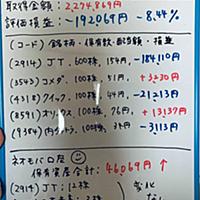 取得金額: 2,274,869円
評価損益: -192069円 -8.44%
(コード) 銘柄・保有数・配当額・損益
(2914) JT, 600株, 154円, -184,110円
(3543) コメダ, 100株, 51円, +3230円
(4318) クイック, 100株, 44円, -21213円
(8591) オリックス, 100株, 76円, +13137円
(9384) 内トラ, 100株, 34円, -3113円
ネオモバ口座
保有資産合計: 46069円 ↑
(2914) JT: 12株
変化